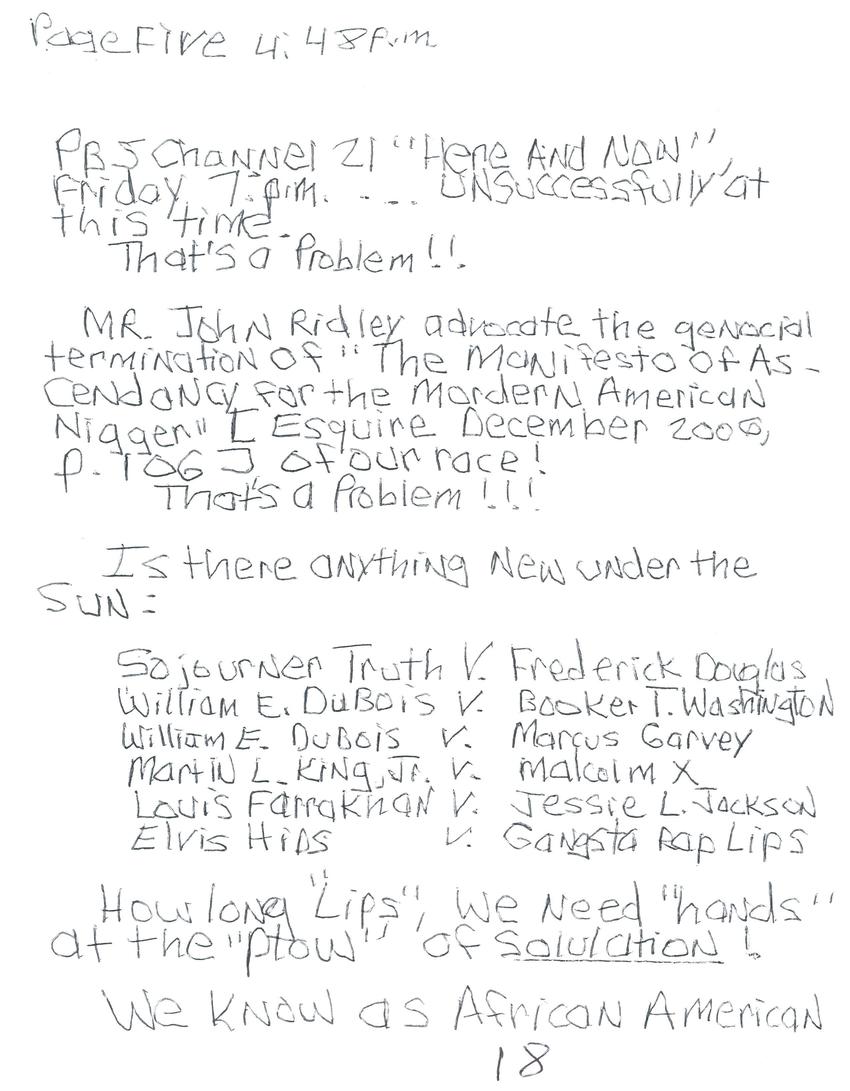 Page Five 4:48 p.m
PBS Channel 21 "Here And Now",
Friday, 7:p.m. .... UNSuccessfully at
this time.
That's a Problem!!
MR. John Ridley advocate the genocial
termination of "The Manifesto of As-
cendancy for the Mordern American
Nigger" [Esquire December 2006,
p. 106] of our race!
That's a Problem!!!
Is there anything New under the
SUN:
Sojourner Truth V. Frederick Douglas
William E. DuBois V. Booker T. Washington
William E. DuBois V. Marcus Garvey
Martin L. King, Jr. V. Malcolm X
Louis Farrakhan V. Jessie L. Jackson
Elvis Hips V. Gangsta Rap Lips
How long "Lips", We Need "hands"
at the "plow" of Salulation!
We Know as African American
18